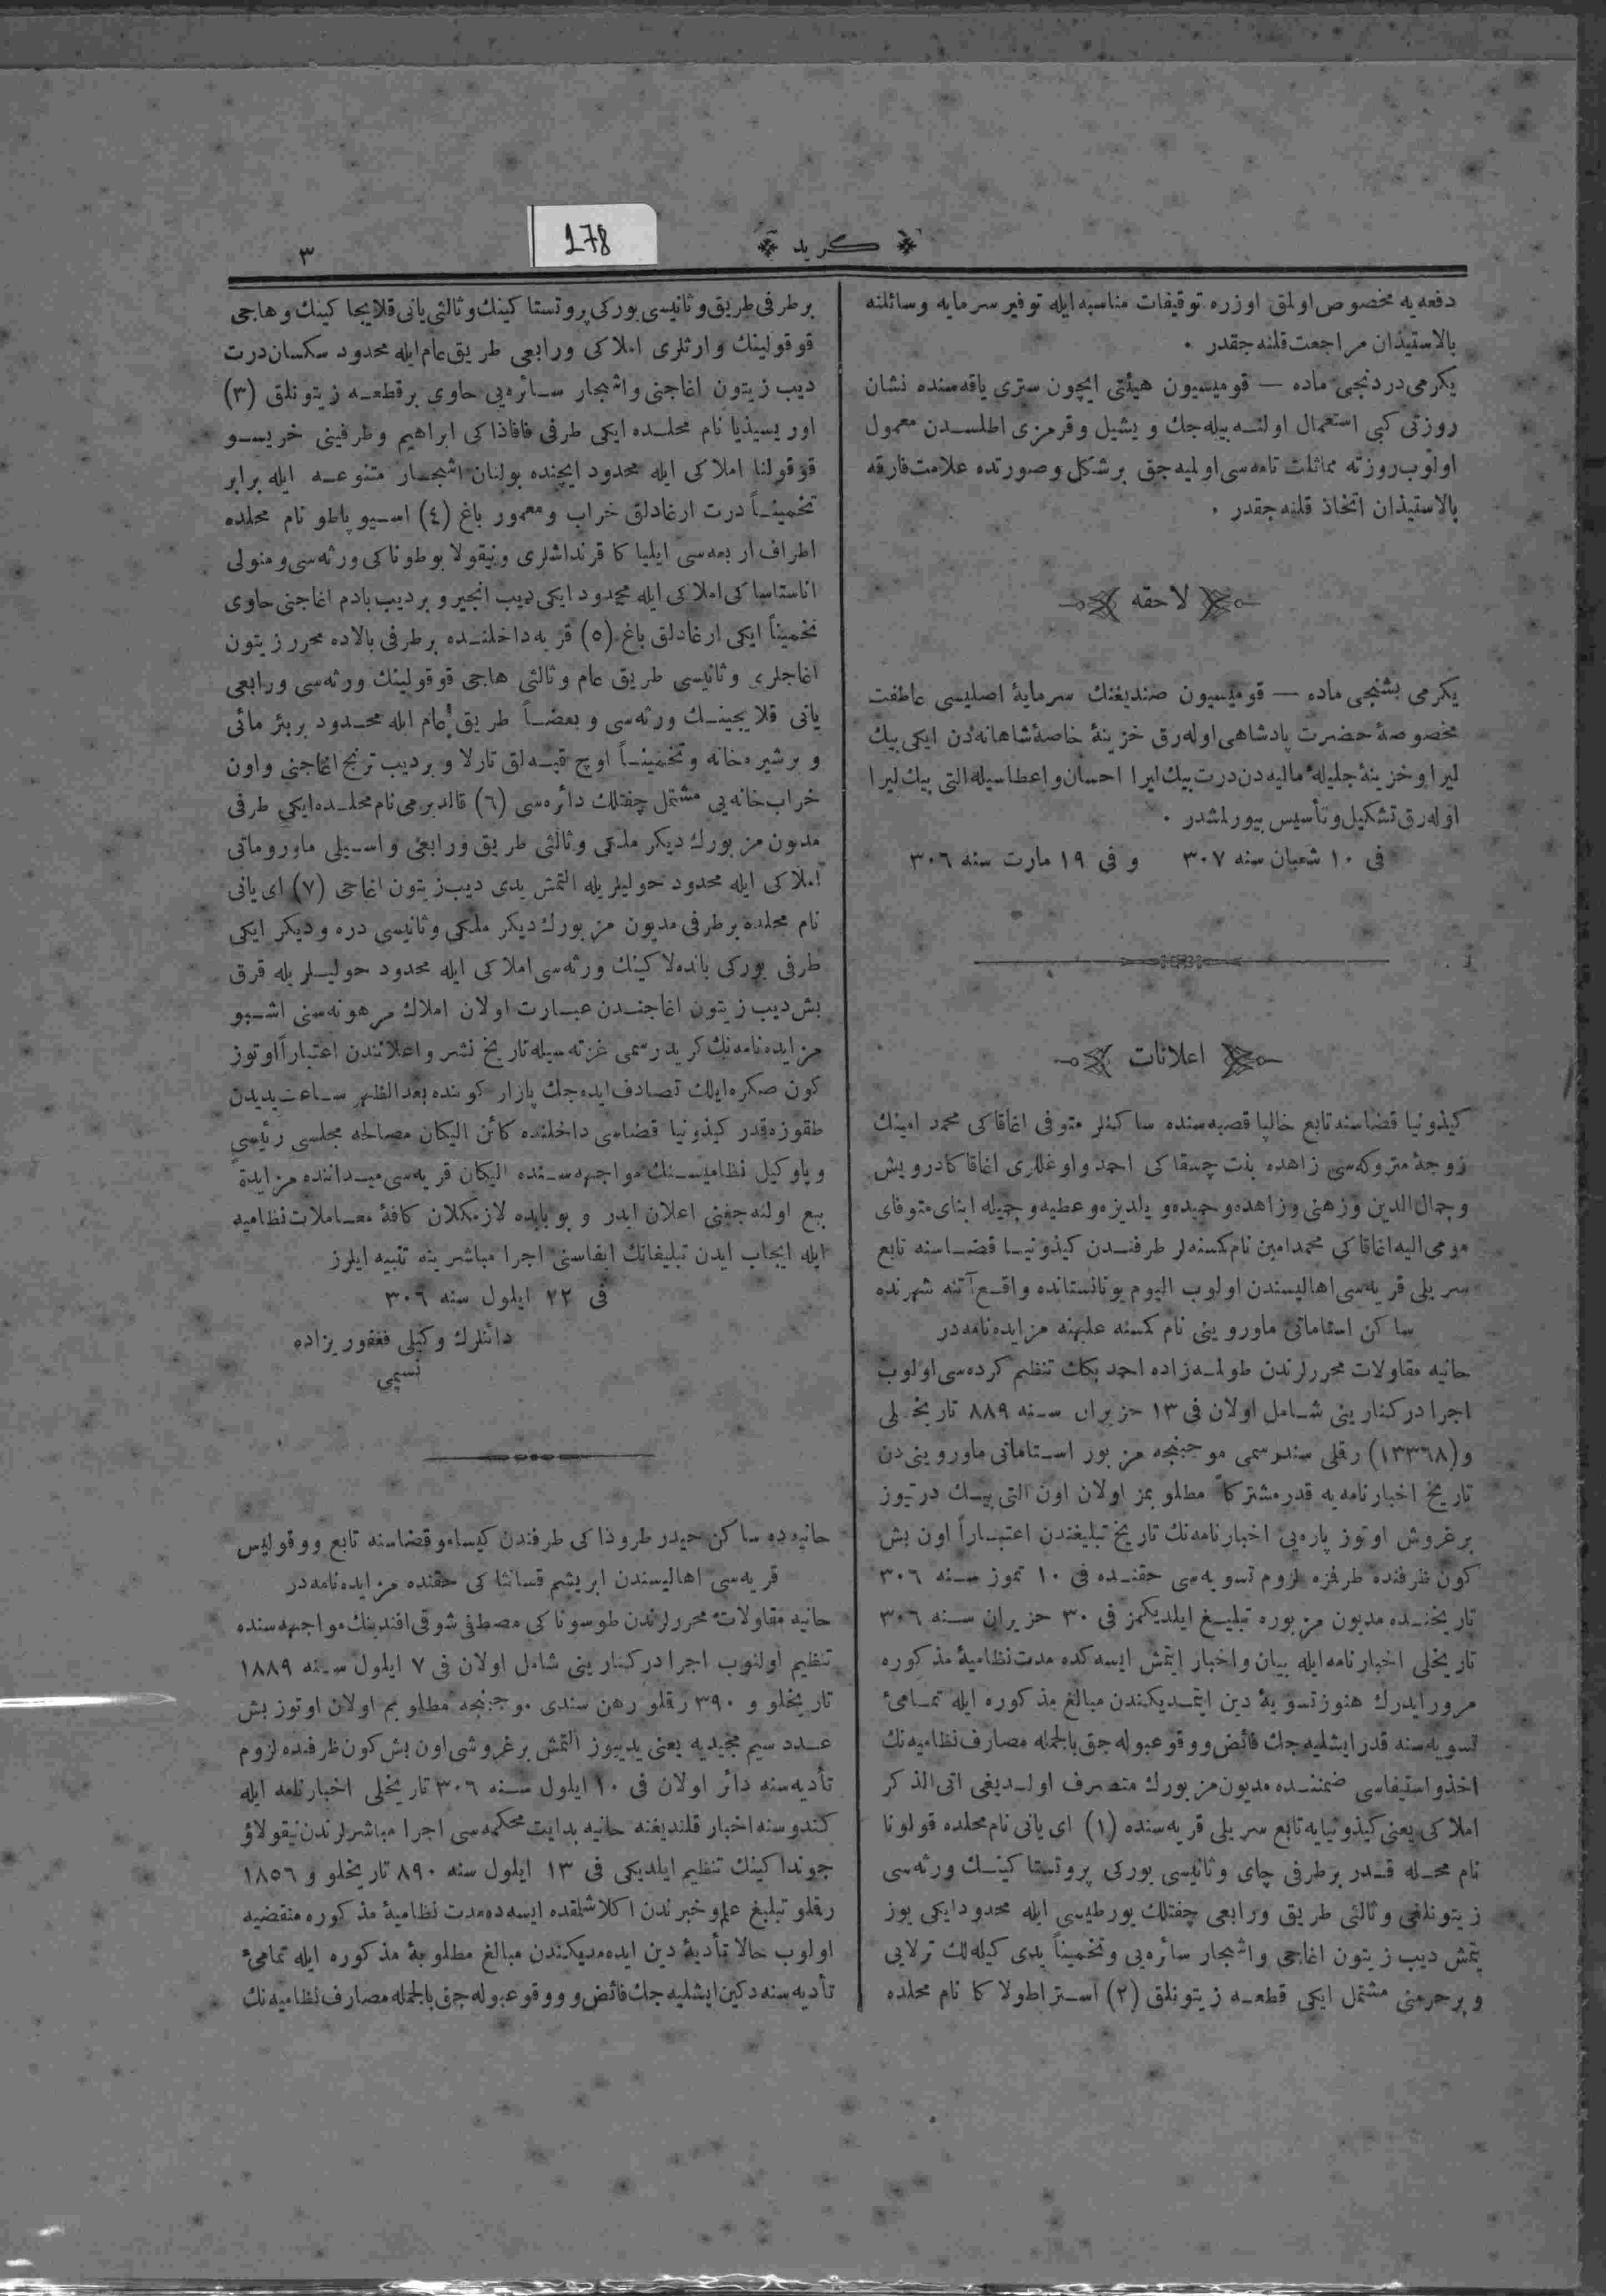 ٣
178
كريد
دفعه‌يه مخصوص اولمق اوزره توقيفات مناسبه ايله توفير سرمايه وسائلنه
بالاستيذان مراجعت قلنه‌جقدر .
يكرمى‌دردنجى ماده — قوميسيون هيئتى ايچون سترى ياقه‌سنده نشان
روزتى كبى استعمال اولنه بيله‌جك و يشيل وقرمزى اطلسدن معمول
اولوب روزته مماثلت تامه‌سى اوليه‌جق بر شكل وصورتده علامت فارقه
بالاستيذان اتخاذ قلنه‌جقدر .
لاحقه
يكرمى بشنجى ماده — قوميسيون صنديغنك سرمايۀ اصليسى عاطفت
مخصوصۀ حضرت پادشاهى اوله‌رق خزينۀ خاصۀ شاهانه‌دن ايكى بيك
ليرا و خزينۀ جليلۀ ماليه‌دن درت بيك ليرا احسان و اعطاسيله التى بيك ليرا
اوله‌رق تشكيل وتأسيس بيورلمشدر .
فى ١٠ شعبان سنه ٣٠٧ و فى ١٩ مارت سنه ٣٠٦
اعلانات
كيذونيا قضاسنه تابع خالپا قصبه‌سنده ساكنلر متوفى اغاقاكى محمد امينك
زوجۀ متروكه‌سى زاهده بنت چسقاكى احمد واوغللرى اغاقاكا درويش
وجمال‌الدين وزهنى وزاهده وحميده و يلديزه و عطيه و جميله ابناى متوفاى
مومى اليه اغاقاكى محمدامين نام كمسنه‌لر طرفندن كيذونيا قضاسنه تابع
سريلى قريه‌سى اهاليسندن اولوب اليوم يونانستانده واقع آتنه شهرنده
ساكن استاماتى ماورو ينى نام كمسنه عليهنه مزايده‌نامه‌در
حانيه مقاولات محررلرندن طولمه‌زاده احمد بكك تنظيم كرده‌سى اولوب
اجرا دركنارينى شامل اولان فى ١٣ حزيران سنه ٨٨٩ تاريخلى
و (١٣٣٦٨) رقملى سند رسمى موجبنجه مزبور استاماتى ماورو ينى‌دن
تاريخ اخبارنامه‌يه قدر مشتركاً مطلوبمز اولان اون التى بيك درتيوز
بر غروش اوتوز پاره‌يى اخبارنامه‌نك تاريخ تبليغندن اعتباراً اون بش
كون ظرفنده طرفمزه لزوم تسويه‌سى حقنده فى ١٠ تموز سنه ٣٠٦
تاريخنده مديون مزبوره تبليغ ايلديكمز فى ٣٠ حزيران سنه ٣٠٦
تاريخلى اخبارنامه ايله بيان واخبار ايتمش ايسه‌كده مدت نظاميۀ مذكوره
مرور ايدرك هنوز تسويۀ دين ايتمديكندن مبالغ مذكوره ايله تمامئ
تسويه‌سنه قدر ايشليه‌جك فائض و وقوعبوله‌جق بالجمله مصارف نظاميه‌نك
اخذ واستيفاسى ضمننده مديون مزبورك متصرف اولديغى اتى الذكر
املاكى يعنى كيذونيايه تابع سريلى قريه‌سنده (١) اى يانى نام محلده قولونا
نام محله قدر بر طرفى چاى وثانيسى يوركى پروتستا كينك ورثه‌سى
زيتونلغى وثالثى طريق ورابعى چفتلك بورطيسى ايله محدود ايكى يوز
يتمش ديب زيتون اغاجى واشجار سائره‌يى وتخميناً يدى كيله‌لك ترلايى
و بر حرمنى مشتمل ايكى قطعه زيتونلق (٢) استراطولاكا نام محلده
بر طرفى طريق وثانيسى يوركى پروتستا كينك وثالثى يانى قلايجا كينك و هاجى
قوقولينك وارثلرى املاكى ورابعى طريق عام ايله محدود سكسان درت
ديب زيتون اغاجنى واشجار سائره‌يى حاوى بر قطعه زيتونلق (٣)
اوريسيذيا نام محلده ايكى طرفى فافاذاكى ابراهيم وطرفينى خريسو
قوقولنا املاكى ايله محدود ايچنده بولنان اشجار متنوعه ايله برابر
تخميناً درت ارغادلق خراب ومعمور باغ (٤) اسيو پاطو نام محلده
اطراف اربعه‌سى ايلياكا قرنداشلرى ونيقولا بوطوناكى ورثه‌سى و متولى
اناستاساكى املاكى ايله محدود ايكى ديب انجير و بر ديب بادم اغاجنى حاوى
تخميناً ايكى ارغادلق باغ (٥) قريه داخلنده بر طرفى بالاده محرر زيتون
اغاجلرى وثانيسى طريق عام وثالثى هاجى قوقولينك ورثه‌سى ورابعى
يانى قلايجينك ورثه‌سى و بعضاً طريق عام ايله محدود بر بئر مائى
و بر شيره‌خانه وتخميناً اوچ قيه‌لق تارلا و بر ديب ترنج اغاجنى واون
خراب خانه‌يى مشتمل چفتلك دائره‌سى (٦) قالدبرمى نام محلده ايكى طرفى
مديون مزبورك ديكر ملكى وثالثى طريق ورابعى واسيلى ماوروماتى
املاكى ايله محدود حوليلريله التمش يدى ديب زيتون اغاجى (٧) اى يانى
نام محلده بر طرفى مديون مزبورك ديكر ملكى وثانيسى دره وديكر ايكى
طرفى يوركى بانده‌لاكينك ورثه‌سى املاكى ايله محدود حوليلريله قرق
بش ديب زيتون اغاجندن عبارت اولان املاك مرهونه‌سنى اشبو
مزايده‌نامه‌نك كريد رسمى غزته‌سيله تاريخ نشر واعلانندن اعتباراً اوتوز
كون صكره ايلك تصادف ايده‌جك پازار كوننده بعدالظهر ساعت يديدن
طقوزه قدر كيذونيا قضاسى داخلنده كائن اليكان مصالحه مجلسى رئيسى
وياوكيل نظاميسنك مواجهه‌سنده اليكان قريه‌سى ميداننده مزايدةً
بيع اولنه‌جغنى اعلان ايدر و بو بابده لازمكلان كافۀ معاملات نظاميه
ايله ايجاب ايدن تبليغاتك ايفاسنى اجرا مباشرينه تنبيه ايلرز
فى ٢٢ ايلول سنه ٣٠٦
دائنلرك وكيلى فغفورىزاده
نسيمى
حانيه‌ده ساكن حيدر طروذاكى طرفندن كيسامو قضاسنه تابع ووقوليس
قريه‌سى اهاليسندن ابريشم قسانثاكى حقنده مزايده‌نامه‌در
حانيه مقاولات محررلرندن طوسوناكى مصطفى شوقى افندينك مواجهه‌سنده
تنظيم اولنوب اجرا دركنارينى شامل اولان فى ٧ ايلول سنه ١٨٨٩
تاريخلو و ٣٩٠ رقملو رهن سندى موجبنجه مطلوبم اولان اوتوز بش
عدد سيم مجيديه يعنى يديوز التمش بر غروشى اون بش كون ظرفنده لزوم
تأديه‌سنه دائر اولان فى ١٠ ايلول سنه ٣٠٦ تاريخلى اخبارنامه ايله
كندوسنه اخبار قلنديغنه حانيه بدايت محكمه‌سى اجرا مباشرلرندن نيقولاؤ
جونداكينك تنظيم ايلديكى فى ١٣ ايلول سنه ٨٩٠ تاريخلو و ١٨٥٦
رقملو تبليغ علم وخبرندن اكلاشلقده ايسه‌ده مدت نظاميۀ مذكوره منقضيه
اولوب حالا تأديۀ دين ايده‌مديكندن مبالغ مطلوبۀ مذكوره ايله تمامئ
تأديه‌سنه دكين ايشليه‌جك فائض و ووقوعبوله‌جق بالجمله مصارف نظاميه‌نك